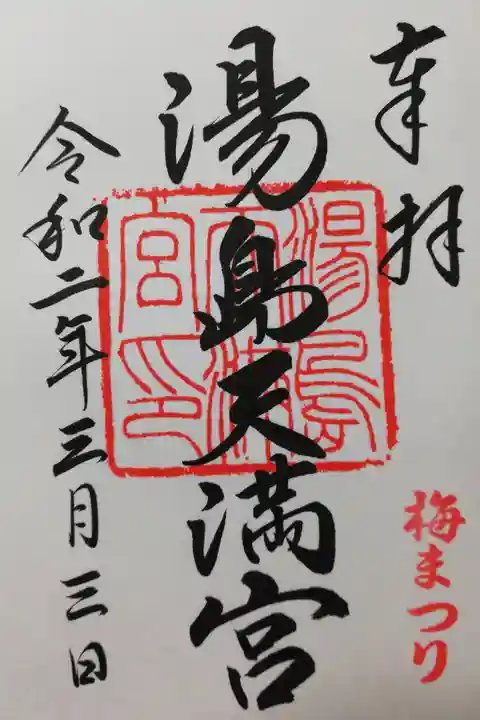 奉拝
梅まつり
湯島天満宮
湯島天満宮印
令和二年三月三日